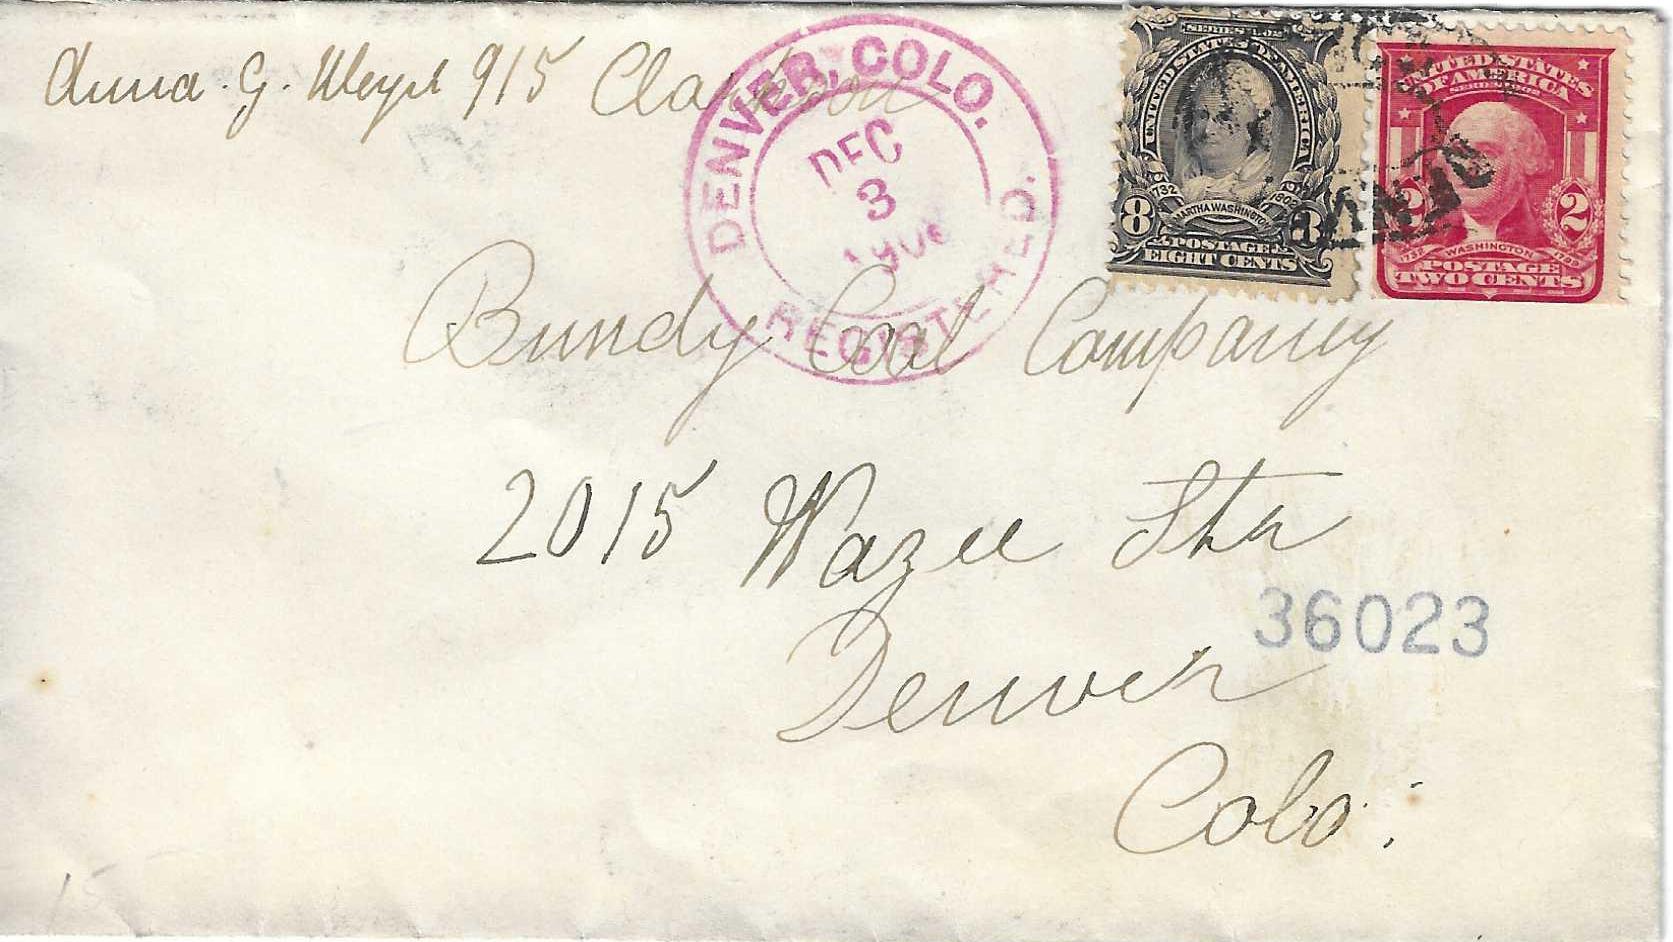 Anna. G. Weyl 915 Clarkson
DENVER, COLO.
DEC
3
1906
REGISTERED.
SERIES 1902
UNITED STATES OF AMERICA
1732 1802
MARTHA WASHINGTON
8 8
POSTAGE
EIGHT CENTS
UNITED STATES
OF AMERICA
SERIES 1902
2 2
1732 WASHINGTON 1799
POSTAGE
TWO CENTS
Bundy Coal Company
2015 Wazee Str
36023
Denver
Colo.
15